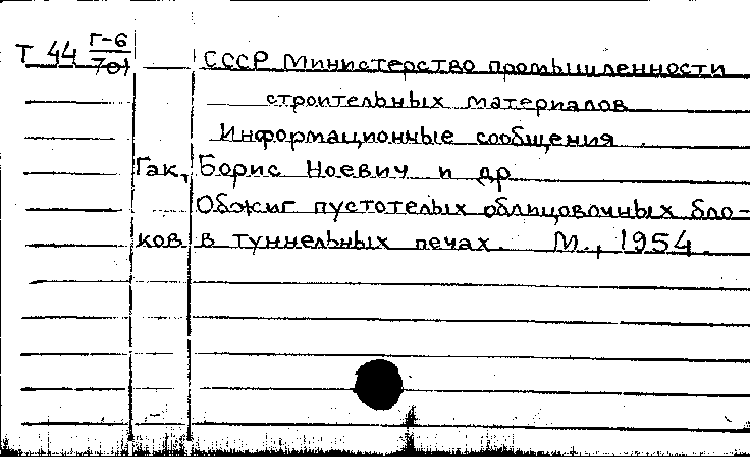 Т 44 Г-6
701 СССР Министерство промышленности
строительных материалов
Информационные сообщения
Гак, Борис Ноевич и др
Обжиг пустотелых облицовочных бло-
ков в туннельных печах. М., 1954.